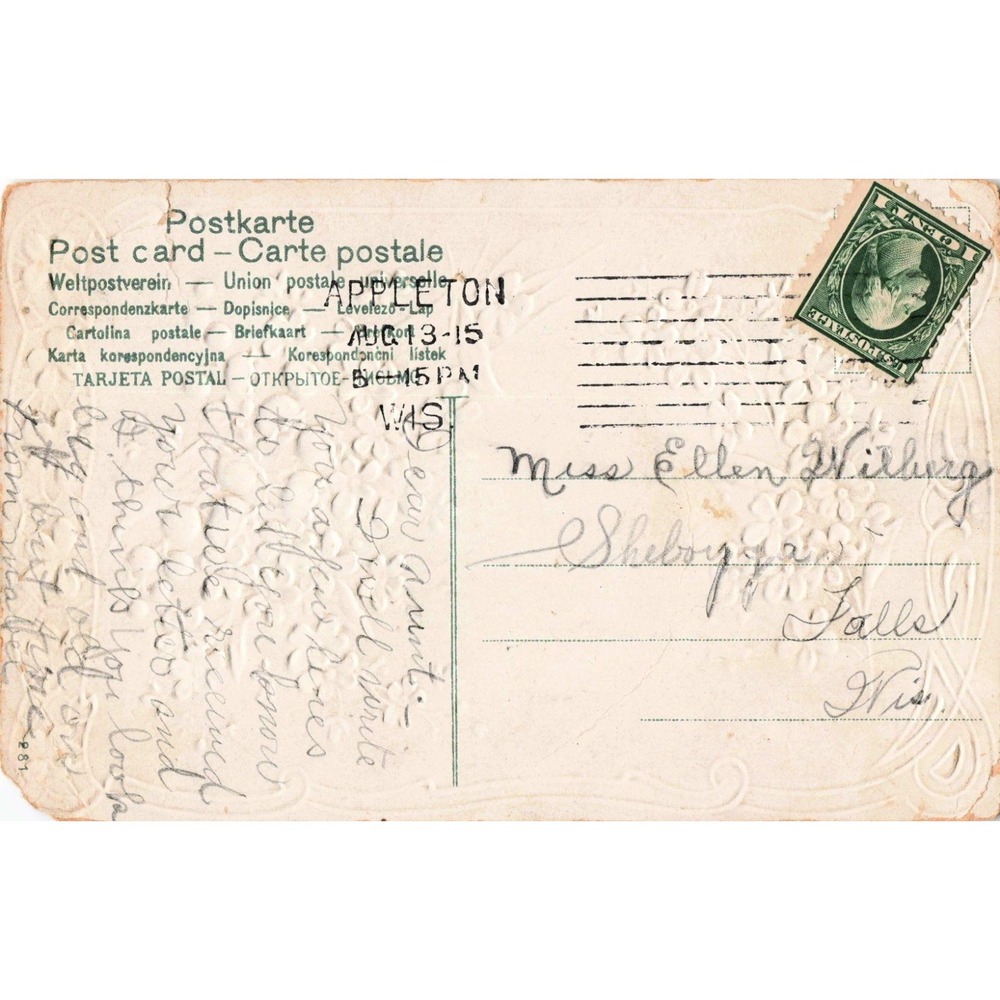 Postkarte
Post card – Carte postale
Weltpostverein — Union postale universelle
Correspondenzkarte — Dopisnice — Levelezö-Lap
Cartolina postale — Briefkaart —
Karta korespondencyjna — Korespondenční listek
TARJETA POSTAL – ОТКРЫТОЕ-ПИСЬМО
APPLETON
AUG 13-15
5 - 15 PM
WIS.
U.S. POSTAGE
1 CENT 1
Miss Ellen Wilberg
Sheboygan
Falls
Wis.
Dear Aunt:-
I will write
you a few lines
to let you know
that I received
your letter and
I think you look
out of
just fine
from
281